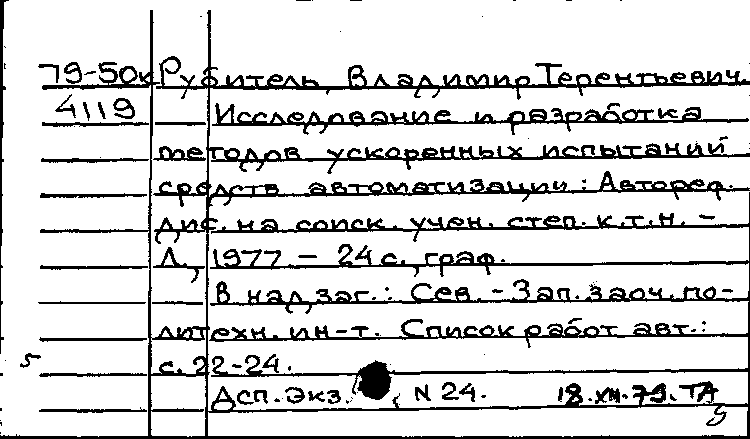 79-50к Рубитель, Владимир Терентьевич.
4119 Исследование и разработка
методов ускоренных испытаний
средств автоматизации: Автореф.
дис. на соиск. учен. степ. к.т.н. –
Л., 1977 – 24 с., граф.
В надзаг.: Сев.-Зап. заоч. по-
литехн. ин-т. Список работ авт.:
5 с. 22-24.
Дсп. Экз. , N 24. 18.XII.79. ТА